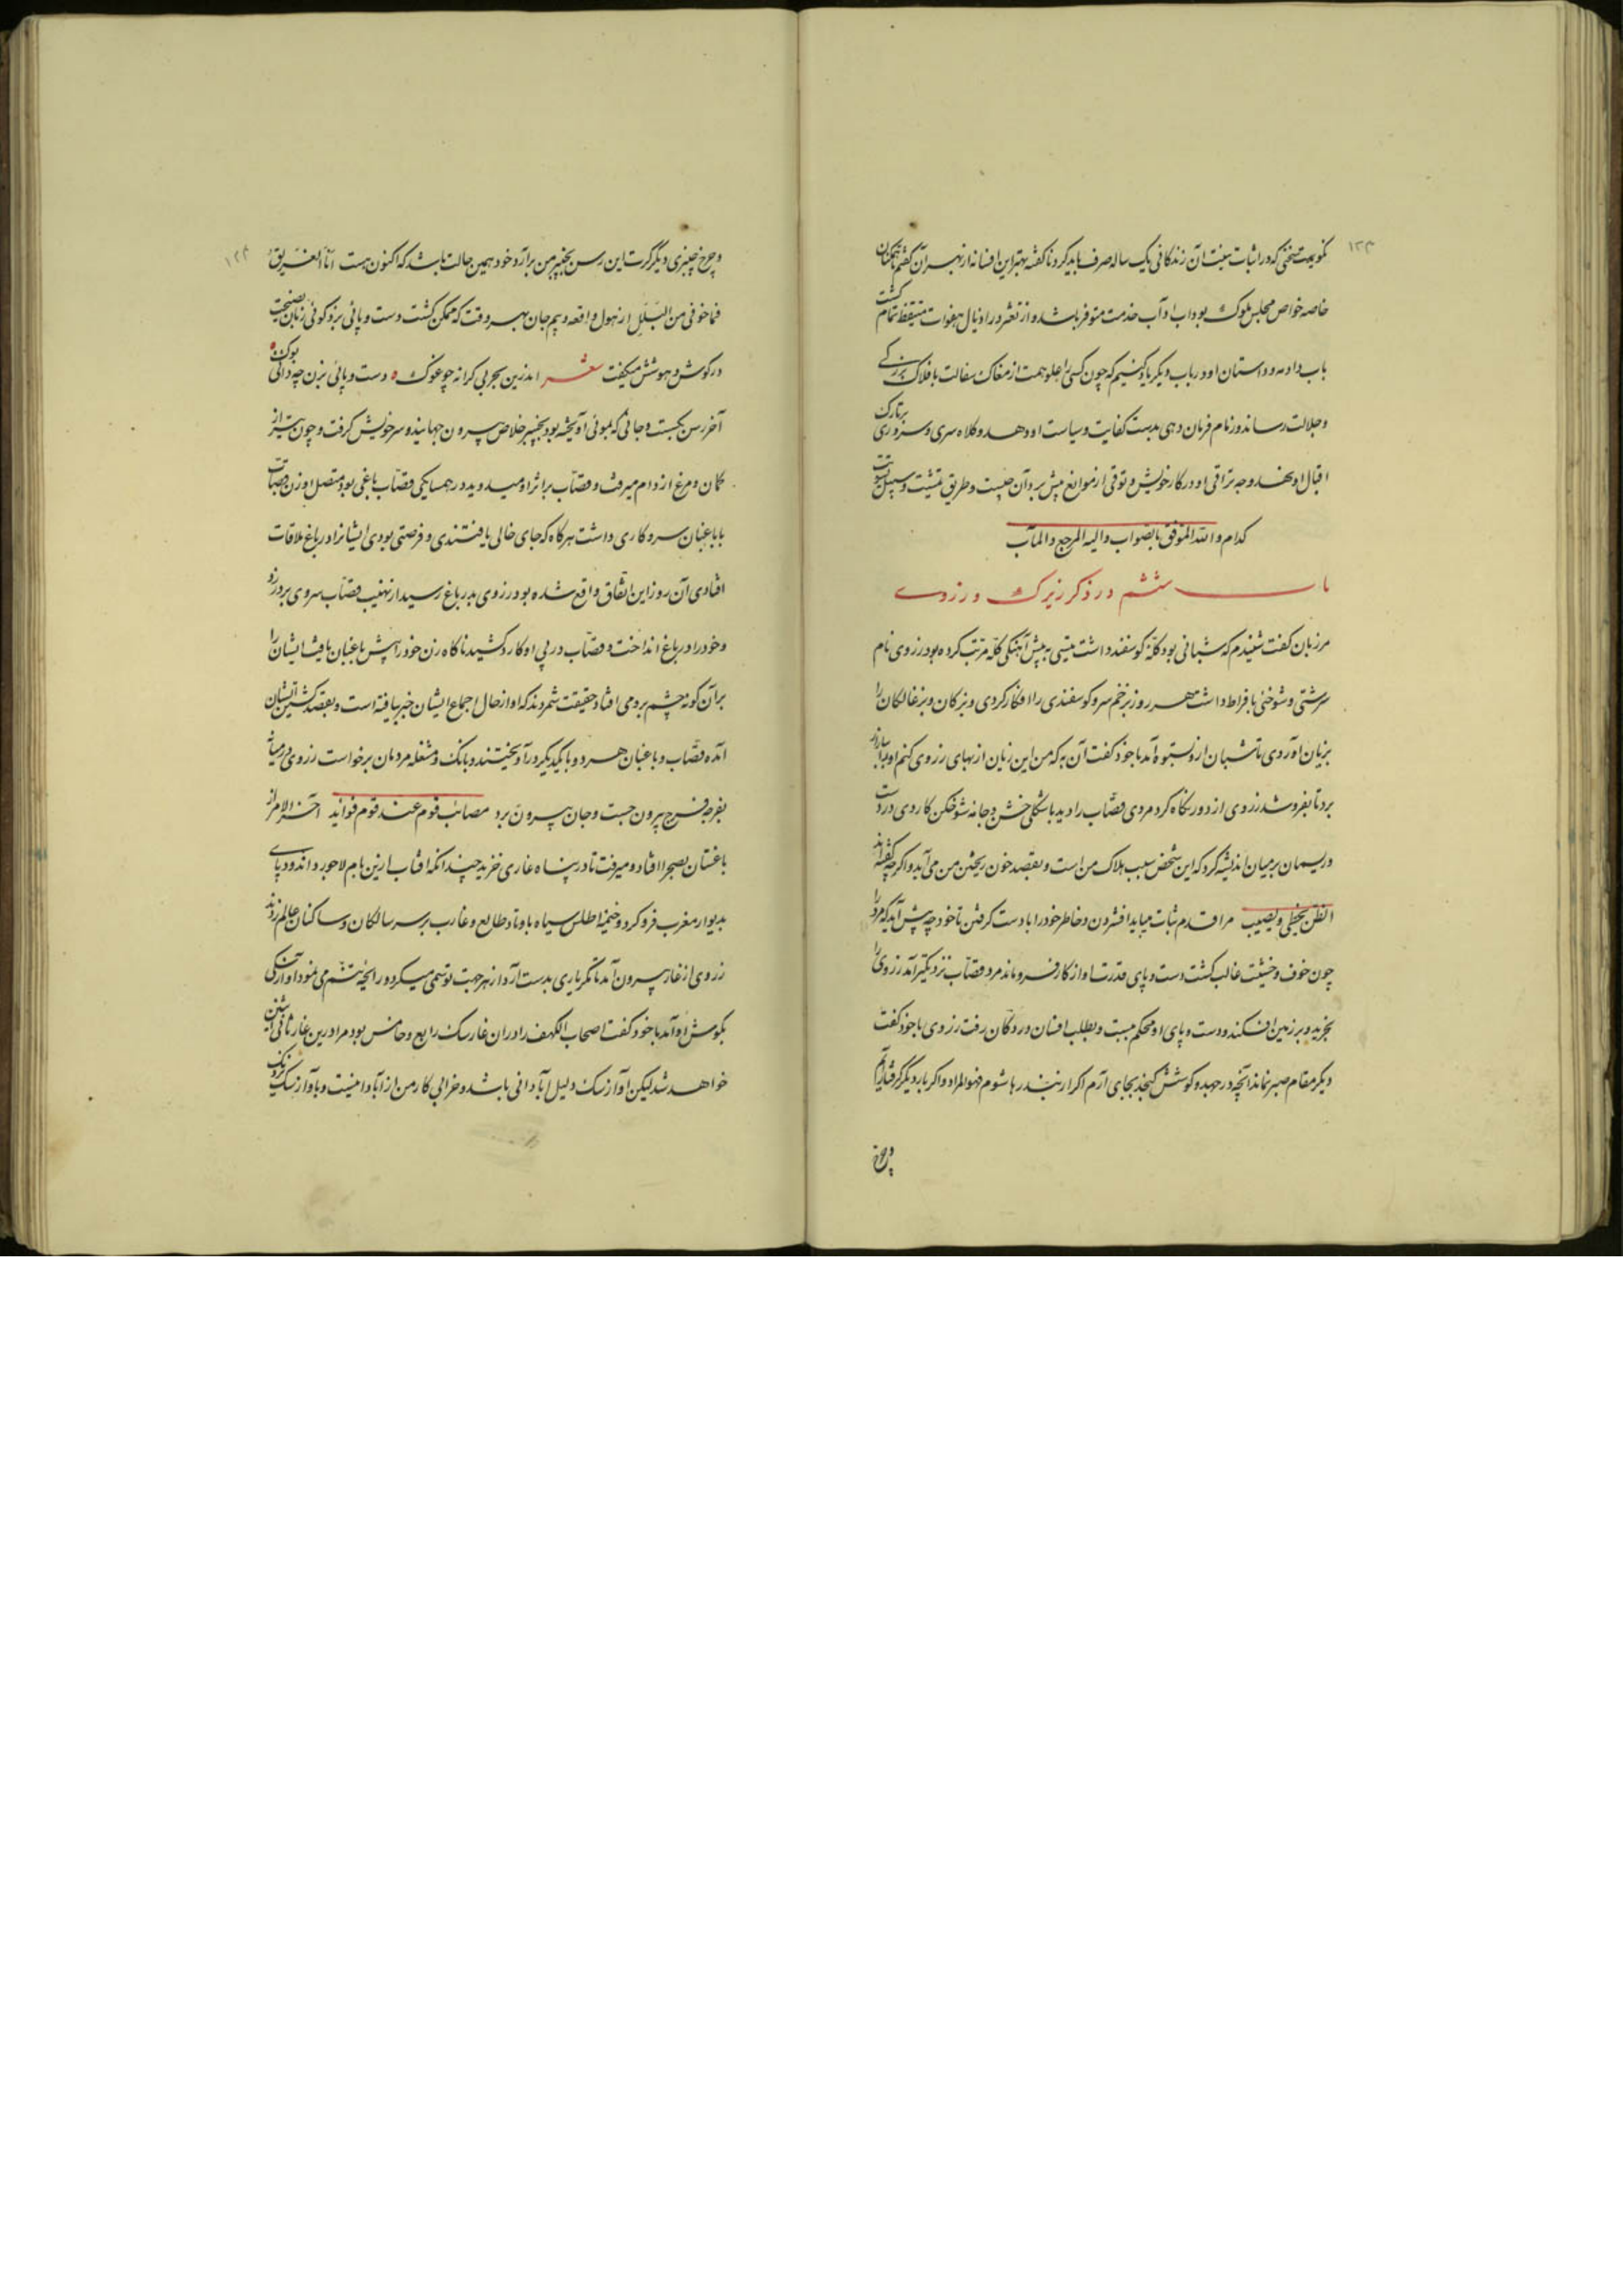 ۱۲۳
نگویمت سخنی که در اثبات بینت آن زندگانی یک ساله صرف باید کرد و ناگفته بهتر این افسانه از بهر آن گفتم تا همگنان
خاصه خواص مجلس ملوک بود اب و آب خدمت متوفر باشد و از تعثر در اذیال هفوات متیقظ تمام گشت
باب دادمه و داستان او در باب دیگر یاد کنیم که چون کسی را علو همت از مغاک سفالت بافلاک بزرگی
و جلالت رساند و زمام فرمان دهی بدست کفایت و سیاست او دهد و کلاه سری و سروری بر تارک
اقبال او نهد وجه تراقی او در کار خویش و توقی از موانع پیش برد آن چیست و طریق تمشیت و سبیل تسویت
کدام والله الموفق بالصواب و الیه المرجع و المآب
باب ششم در ذکر زیرک و زروی
مرزبان گفت شنیدم که شبانی بود گلهٔ گوسفند داشت تیسی به پیش آهنگی گله مرتب کرده بود زروی نام
سرشتی و شوخی بافراط داشت هر روز بزخم سرو گوسفندی را افگار کردی و بزکان و بزغالگان را
بزیان آوردی تا شبان ازو بستوه آمد با خود گفت آن به که من این زیان از بهای زروی کنم او را ببازار
برد تا بفروشد زروی از دور نگاه کرد مردی قصاب را دید با شکلی خشن و جامهٔ شوخگن کاردی در دست
و ریسمان بر میان اندیشه کرد که این شخص سبب هلاک من است و بقصد خون ریختن من می آید و اگرچه گفته اند
الظن یخطی و یصیب مرا قدم ثبات میباید افشردن و خاطر خود را با دست گرفتن تا خود چه پیش آید که مرد را
چون خوف و خشیت غالب گشت دست و پای قدرت او از کار فرو ماند مرد قصاب نزدیکتر آمد زروی را
بخرید و بر زمین افکند و دست و پای او محکم ببست و بطلب افسان در دکان رفت زروی با خود گفت
دیگر مقام صبر نماند آنچه در جهد و کوشش گنجد بجای آرم اگر از بند رها شوم فهو المراد و اگر بار دیگر گرفتار آیم
و چرخ
۱۲۴
و چرخ چنبری دیگر کرت این رسن بچنبر من برآرد خود همین حالت باشد که اکنون هست انا الغریق
فما خوفی من البلل از هول واقعه و بیم جان بهر وقت که ممکن گشت دست و پائی بزد گوئی زبان نصیحت
در گوش هوشش میگفت شعر اندرین بحر بی کرانه چو غوک ه دست و پائی بزن چه دانی بوک ه
آخر رسن بگسست و جانی که بموئی آویخته بود بچنبر خلاص بیرون جهانید و سر خویش گرفت و چون تیر از
کمان و مرغ از دام میرفت و قصاب بر اثر او میدوید در همسایگی قصاب باغی بود متصل او زن قصاب
با باغبان سر و کاری داشت هر گاه که جای خالی یافتندی و فرصتی بودی ایشان را در باغ ملاقات
افتادی آن روز این اتفاق واقع شده بود زروی بدر باغ رسید از نهیب قصاب سروی بر در زد
و خود را در باغ انداخت و قصاب در پی او کارد کشید ناگاه زن خود را پیش باغبان یافت ایشان را
بر آن گونه چشم برو می افتاد حقیقت شمردند که او از حال اجماع ایشان خبر یافته است و بقصد کشتن ایشان
آمده قصاب و باغبان هر دو با یکدیگر در آویختند و بانک و مشغله مردمان برخواست زروی در میانه
بفرجهٔ فرج بیرون جست و جان بیرون برد مصائب قوم عند قوم فوائد آخر الامر از
باغستان بصحرا افتاد و میرفت تا در پناه غاری خزید چندانکه افتاب ازین بام لاجورد اندود پای
بدیوار مغرب فرو کرد و خیمهٔ اطلس سیاه باوتاد طالع و غارب بر سر سالکان و ساکنان عالم زدند
زروی از غار بیرون آمد تا مگر یاری بدست آرد از هر جهت توسمی میکرد و رایحهٔ تنسم می نمود آواز سگی
بگوش او آمد با خود گفت اصحاب الکهف را در ان غار سگ رابع و خامس بود مرا درین غار ثانی اثنین
خواهد شد لیکن آواز سگ دلیل آبادانی باشد و خرابی کار من از آبادانیست و بآواز سگ نزدیک